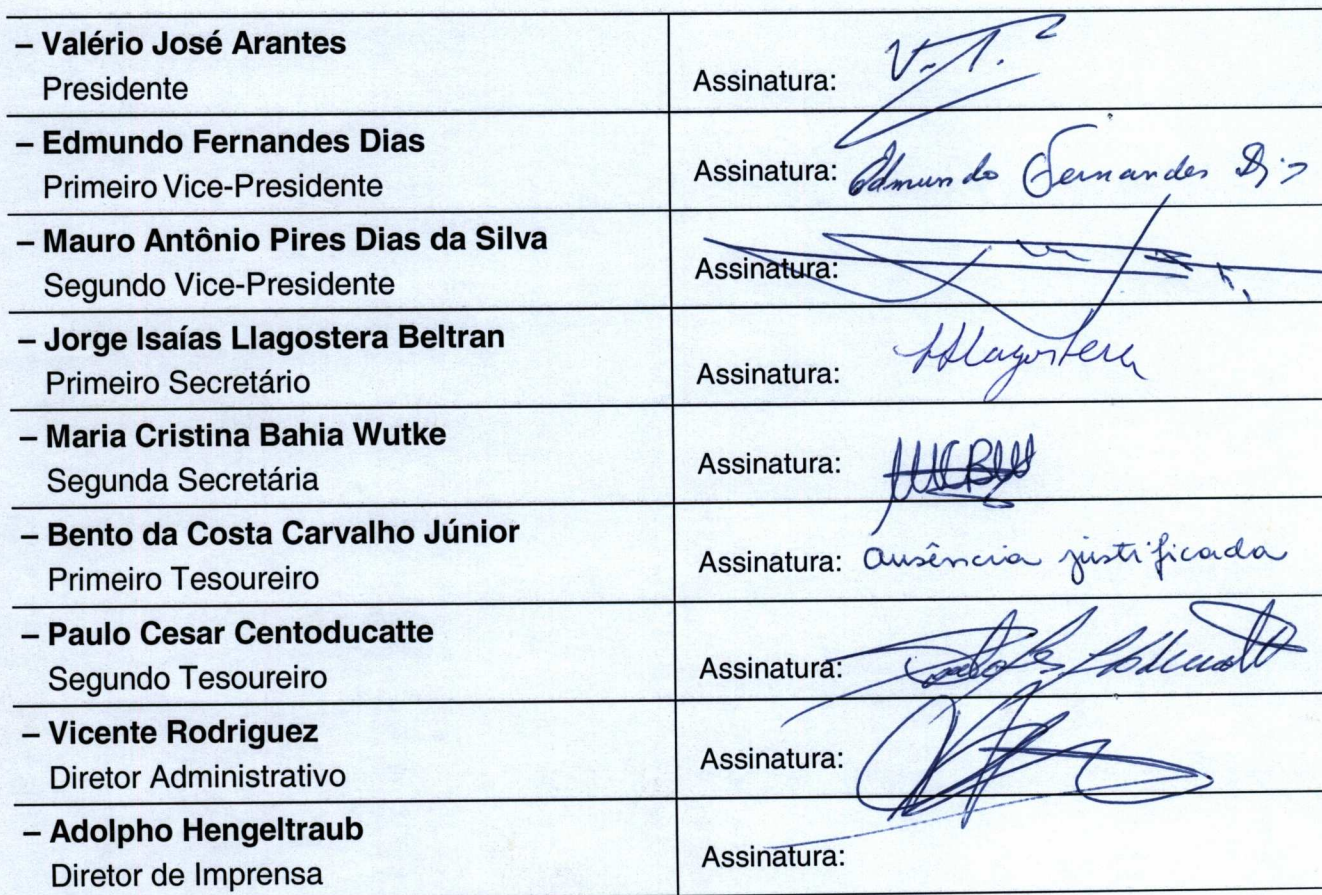 – Valério José Arantes
Presidente
Assinatura:
– Edmundo Fernandes Dias
Primeiro Vice-Presidente
Assinatura: Edmundo Fernandes Dias
– Mauro Antônio Pires Dias da Silva
Segundo Vice-Presidente
Assinatura:
– Jorge Isaías Llagostera Beltran
Primeiro Secretário
Assinatura: Llagostera
– Maria Cristina Bahia Wutke
Segunda Secretária
Assinatura: MCBW
– Bento da Costa Carvalho Júnior
Primeiro Tesoureiro
Assinatura: Ausência justificada
– Paulo Cesar Centoducatte
Segundo Tesoureiro
Assinatura:
– Vicente Rodriguez
Diretor Administrativo
Assinatura:
– Adolpho Hengeltraub
Diretor de Imprensa
Assinatura: